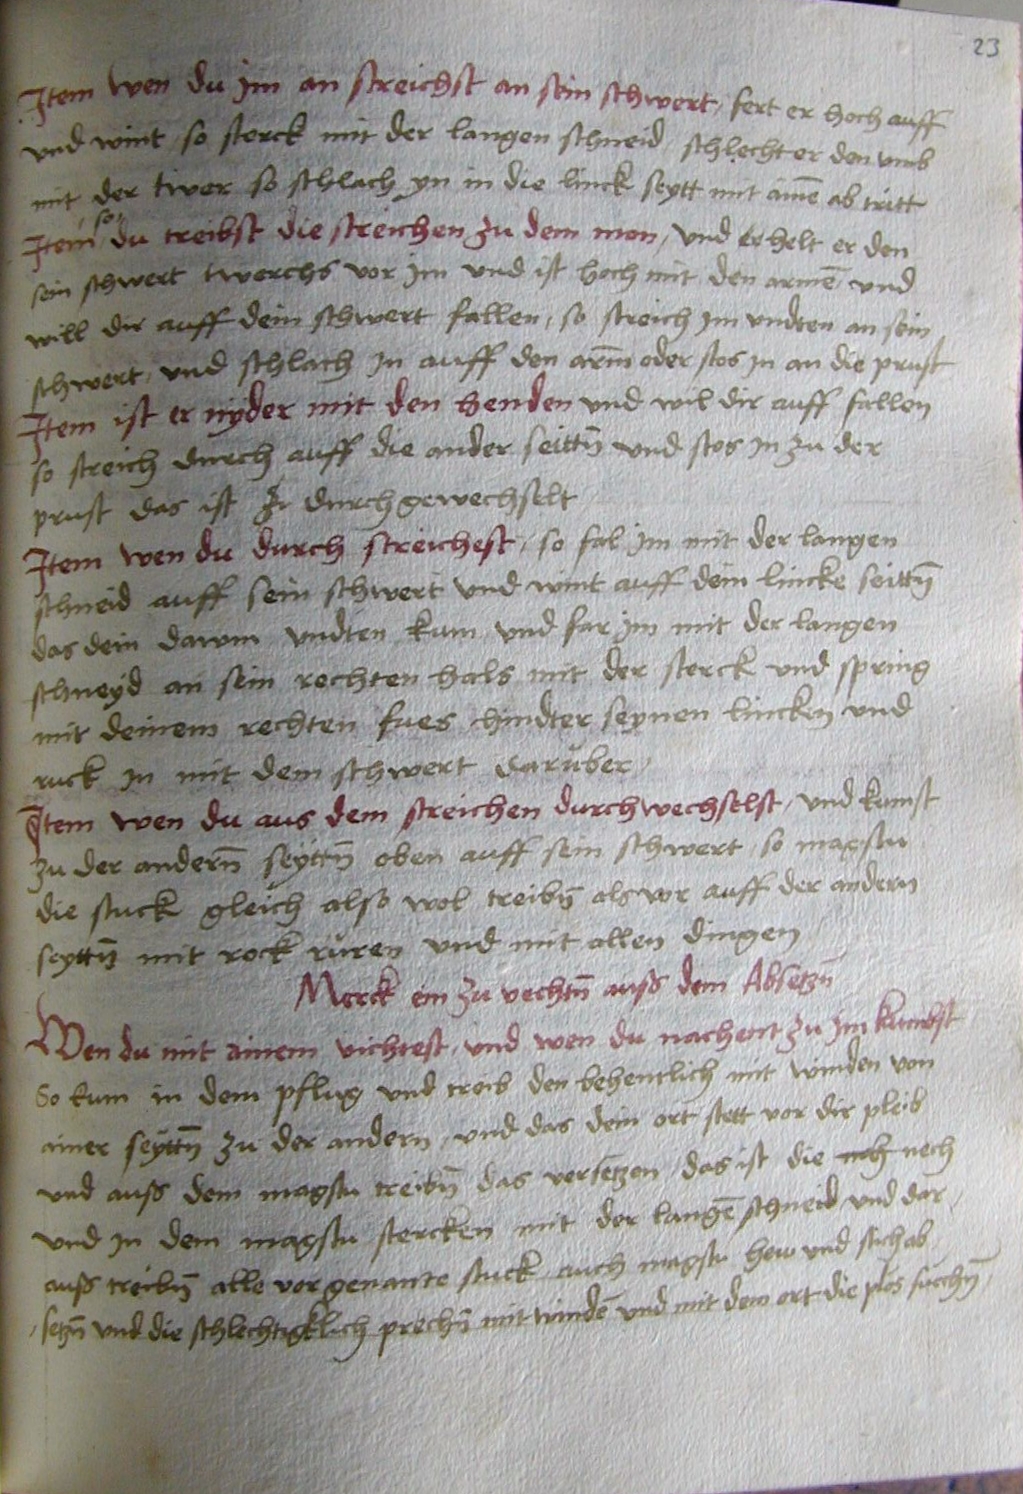 23
Item wen du im an streichst an sein schwert, fert er hoch auff
vnd wint, so sterck mit der langen schneid, schlecht er den vmb
mit der twer so schlach yn in die linck seytt mit ainē ab tritt
Item so du treibst die streichen zu dem mon, vnd erhelt er den
sein schwert twerchs vor im vnd ist hoch mit den armē vnd
will dir auff dein schwert fallen, so streich im vndten an sein
schwert, vnd schlach in auff den arm̄ oder stos in an die prust
Item ist er nyder mit den henden vnd wil dir auff fallen
so streich durch auff die ander seittn̄ vnd stos in zu der
prust das ist durchgewechselt
Item wen du durch streichest, so fal im mit der langen
schneid auff sein schwert vnd wint auff dein lincke seittn̄
das dein dawm vndten kum vnd far im mit der langen
schneyd an sein rechten hals mit der sterck vnd spring
mit deinem rechten fues hindter seynen lincken vnd
ruck in mit dem schwert darüber
Item wen du aus dem streichen durchwechselst, vnd kumst
zu der andern̄ seyttn̄ oben auff sein schwert, so magstu
die stuck gleich also wol treibn̄ als vor auff der andern
seyttn̄ mit rock rüren vnd mit allen dingen
Merck ein zu vechtn̄ auss dem Absetzn̄
Wen du mit ainem vichtest, vnd wen du nachent zu im kumbst
So kum in dem pflug vnd treib den behentlich mit winden von
ainer seyttn̄ zu der andern, vnd das dein ort stett vor dir pleib
vnd auss dem magstu treibn̄ das versetzen das ist die nech
vnd in dem magstu stercken mit der langē schneid vnd dar
auss treibn̄ alle vor genante stuck auch magstu hew vnd stich ab
setzn̄ vnd die schlechtigklich prechn̄ mit windē vnd mit dem ort die plös suechn̄